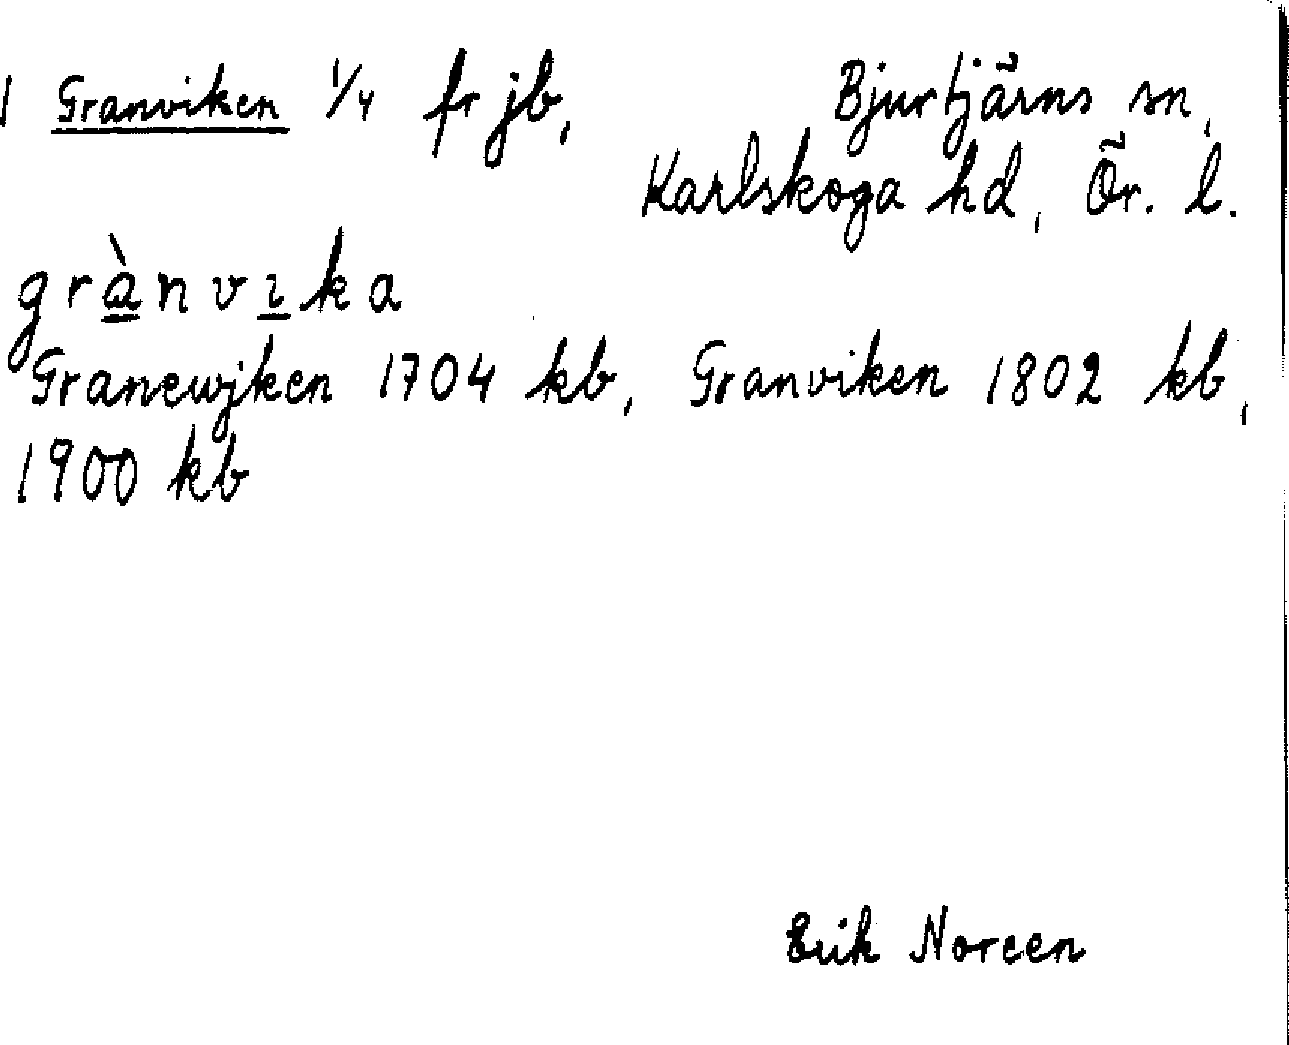 1 Granviken 1/4 fr jb, Bjurtjärns sn,
Karlskoga hd, Ör. l.
grànvıka
Granewjken 1704 kb, Granviken 1802 kb,
1900 kb
Erik Noreen